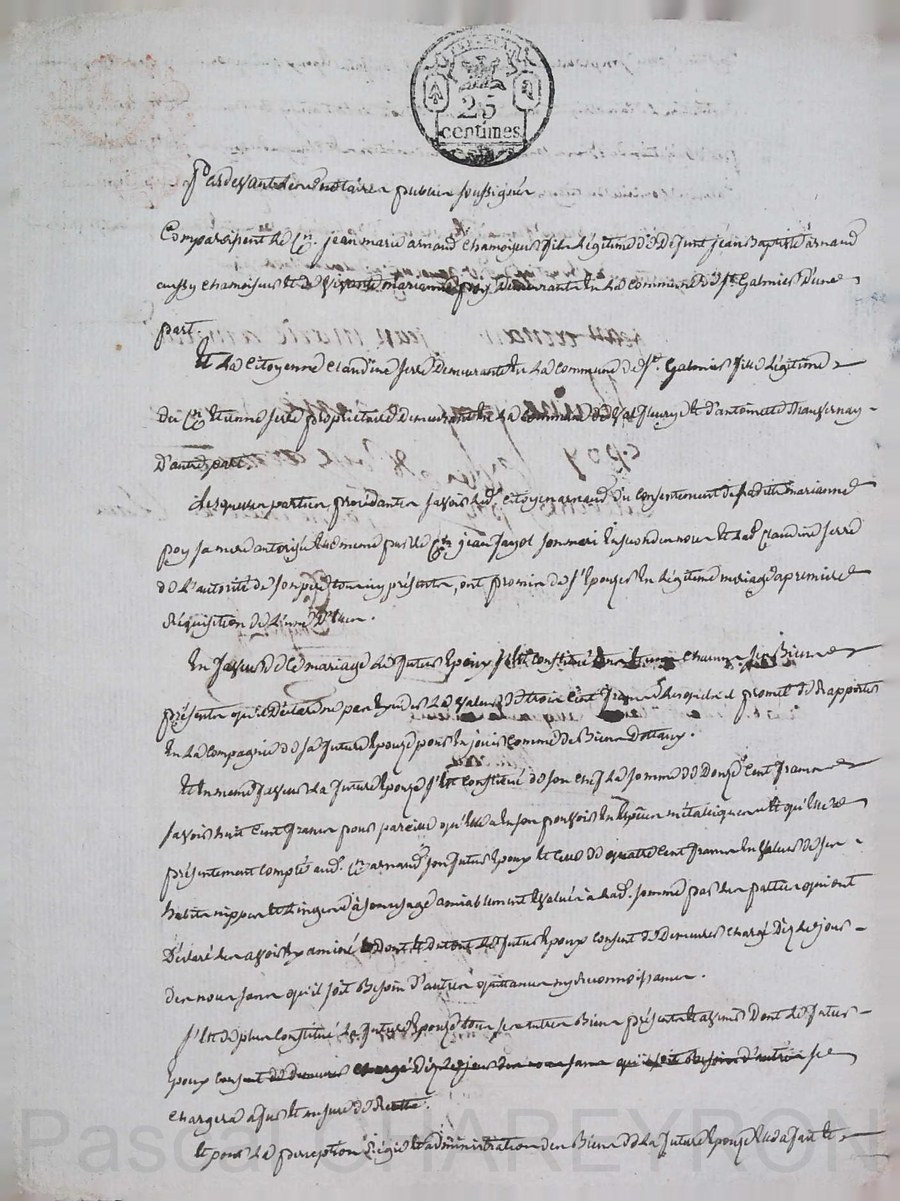 25
centimes
Pardevant les notaires publics soussignés
Comparaissent le Cen. jean marie arnaud chamoiseur fils légitime de defunt jean Baptiste arnaud
aussy chamoiseur et de vivante marianne poy demeurante en la commune de St. Galmier d'une
part.
Et la Citoyenne Claudine serre demeurante en la commune de St. Galmier fille légitime
du Cen Etienne serre proprietaire demeurant en la commune de valfleury et d'antoinette
d'autre part
Lesquelles parties procédantes savoir led. citoyen arnaud du consentement de ladite marianne
poy sa mere autorisée elle meme par le Cen jean jayol son mari en secondes noces et lad. Claudine serre
de l'autorité de son pere tous icy présents, ont promis de s'épouser en légitime mariage a premiere
Réquisition de l'un d'eux.
En faveur de ce mariage le futur Epoux s'est constitué ses Biens
présents qu'il déclare ne pas exceder la valeur de trois cent francs promet de Rapporter
en la compagnie de sa future Epouse pour en jouir comme de Biens dotaux.
Et en meme faveur la future Epouse s'est constitué de son chef la somme de Douze cent francs
savoir huit cent francs pour pareille qu'elle a en son pouvoir en Espèces métalliques et qu'elle a
présentement compté aud. Cen arnaud son futur Epoux et celle de quatre cent francs en valeur de ses
habits nippes et lingerie à son usage amiablement Evalués à lad. somme par les parties qui ont
Déclaré les avoir Examiné Dont du tout le futur Epoux consent de Demeurer chargé Dez le jour
des noces sans qu'il soit Besoin d'autres quittances ny Reconnoissances.
S'est de plus constitué la future Epouse tous ses autres Biens présents et avenir dont le futur
Epoux consent de demeurer chargé dez le jour des noces sans qu'il soit besoin d'autres se
chargera a fur et mesure de Recette.
Et pour la perception Régie et administration des Biens de la future Epouse Elle a fait et
Pascal CHAREYRON